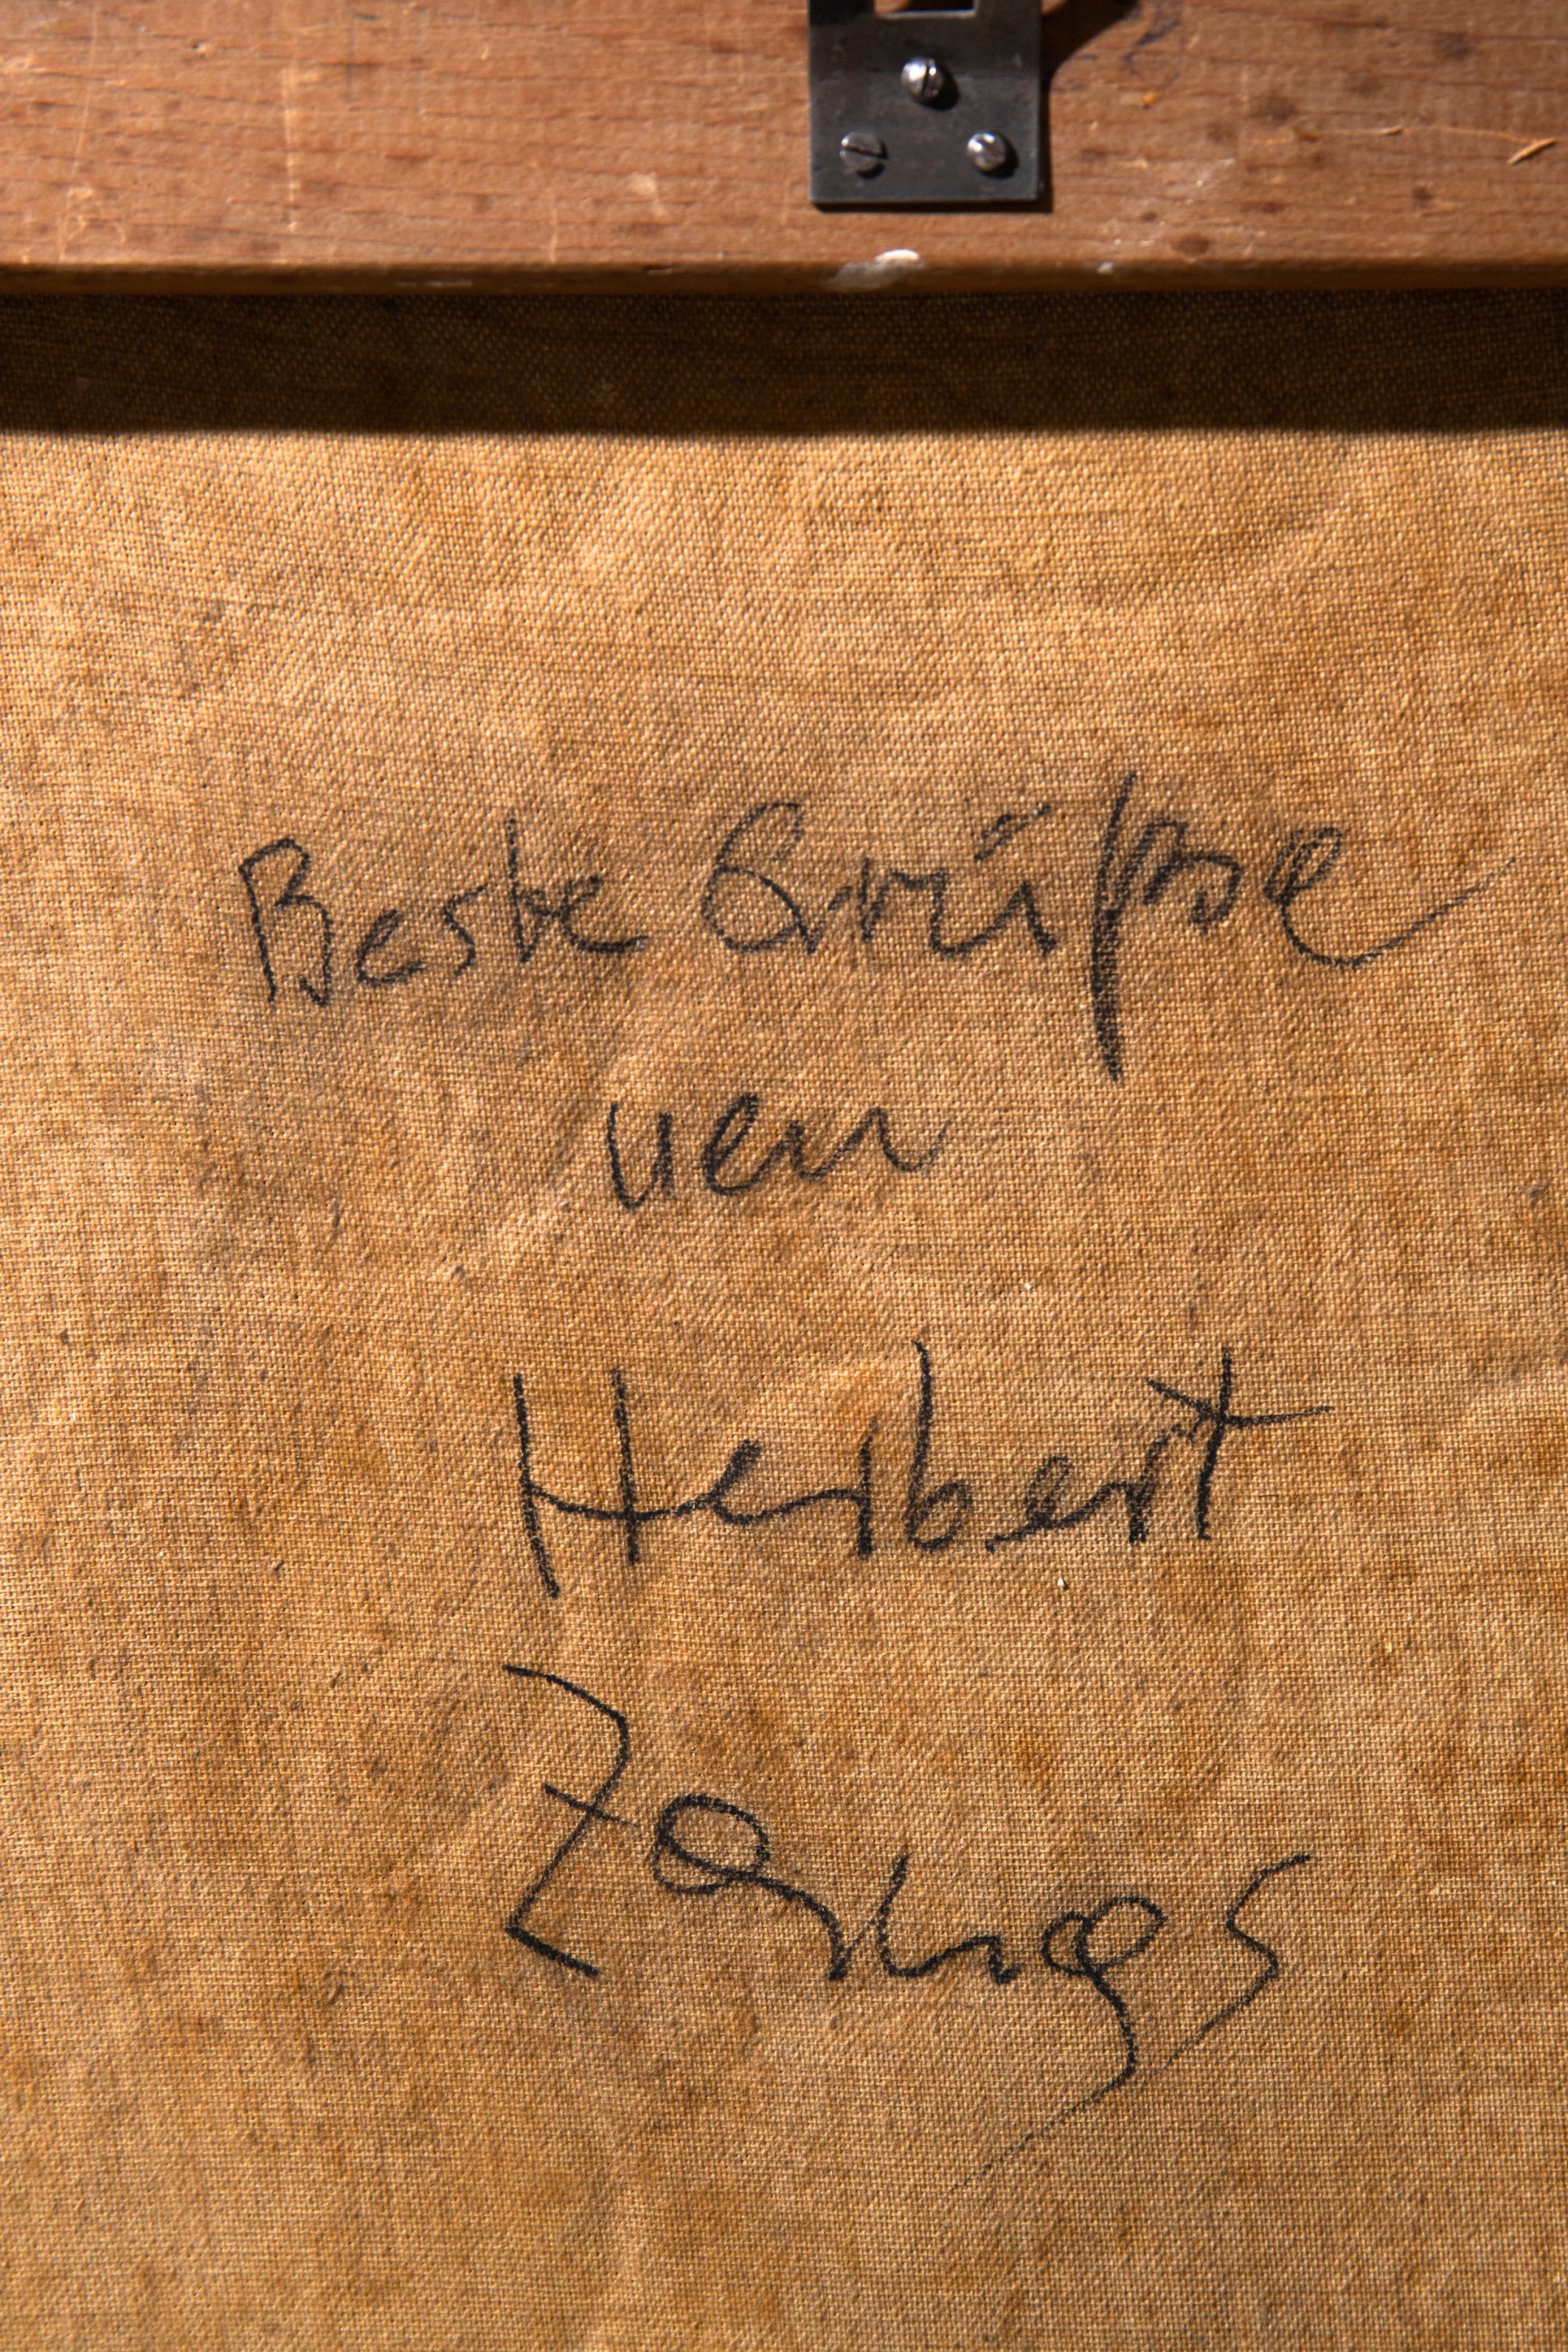 Beste Grüße
von
Herbert
Zangs